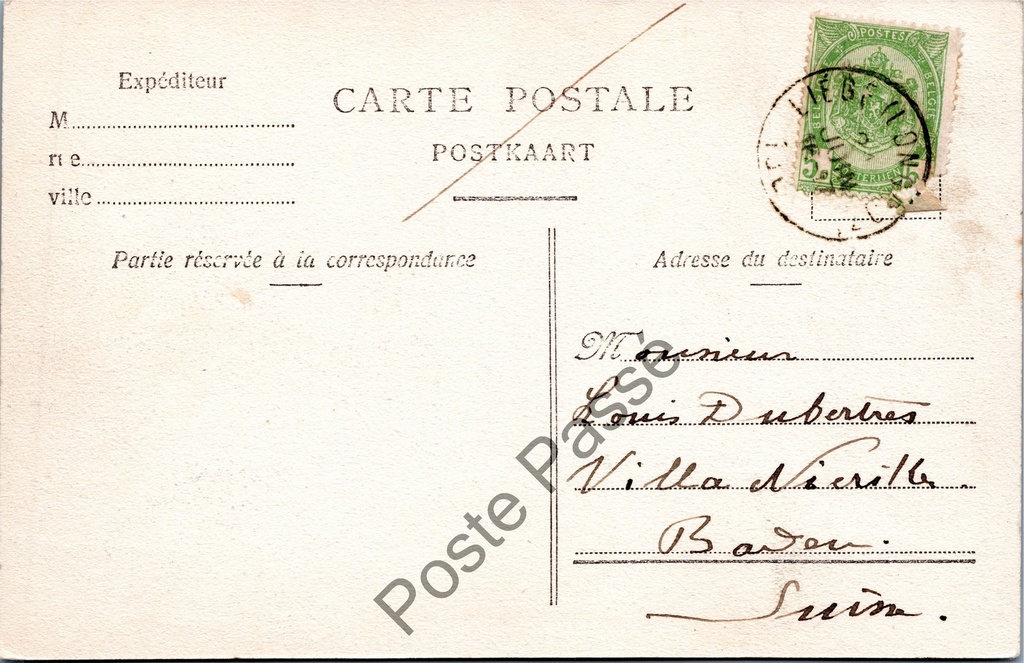 Expéditeur
M
rue
ville
CARTE POSTALE
POSTKAART
POSTES
BELGIE
5 5
LIÉGE (LON
Partie réservée à la correspondance
Adresse du destinataire
Monsieur
Louis Dubertres
Villa
Baden.
Suisse.
Poste Passé